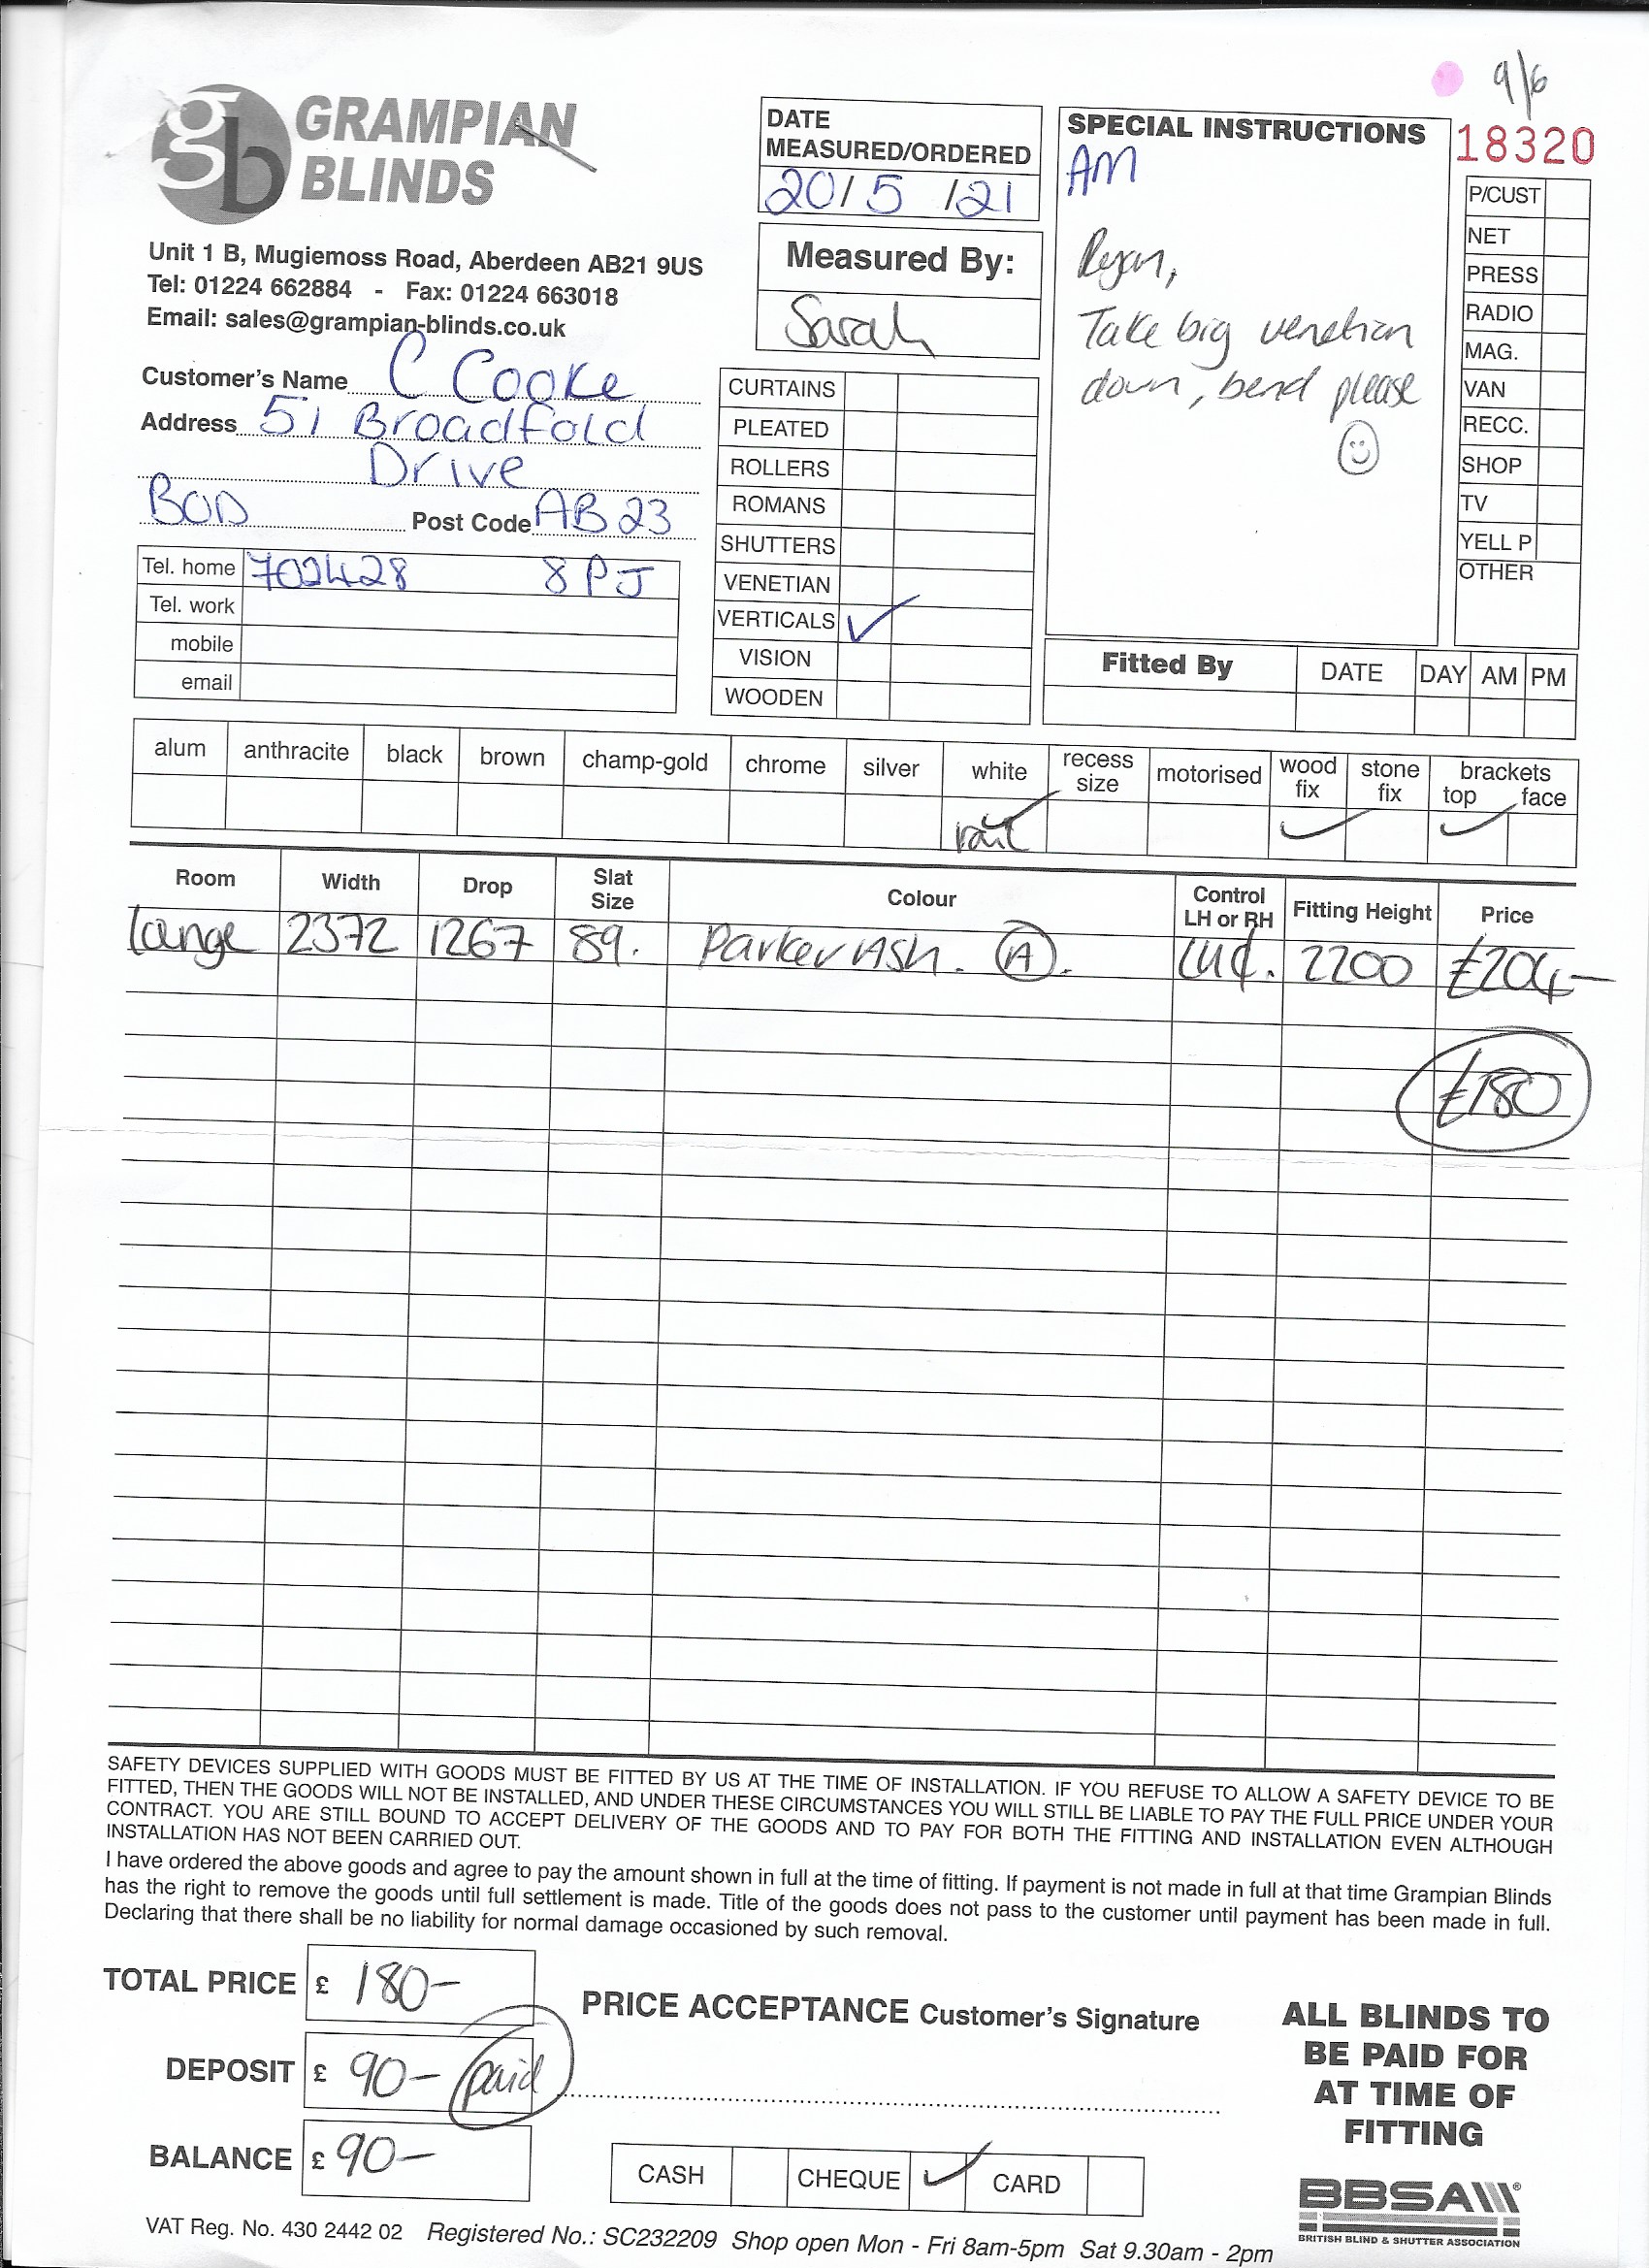 9/6
GRAMPIAN
BLINDS
gb
Unit 1 B, Mugiemoss Road, Aberdeen AB21 9US
Tel: 01224 662884 - Fax: 01224 663018
Email: sales@grampian-blinds.co.uk
Customer's Name C Cooke
Address 51 Broadfold
Drive
BOD Post Code AB23
Tel. home 702428 8PJ
Tel. work
mobile
email
DATE
MEASURED/ORDERED
20/5/21
Measured By:
Sarah
CURTAINS
PLEATED
ROLLERS
ROMANS
SHUTTERS
VENETIAN
VERTICALS ✓
VISION
WOODEN
SPECIAL INSTRUCTIONS
AM
Ryan,
Take big venetian
down, bend please
18320
P/CUST
NET
PRESS
RADIO
MAG.
VAN
RECC.
SHOP
TV
YELL P
OTHER
Fitted By DATE DAY AM PM
alum anthracite black brown champ-gold chrome silver white recess size motorised wood fix stone fix brackets top face
rail ✓ ✓ ✓
Room Width Drop Slat Size Colour Control LH or RH Fitting Height Price
Lounge 2372 1267 89. Parker Ash. A. 2200 £204-
£180
SAFETY DEVICES SUPPLIED WITH GOODS MUST BE FITTED BY US AT THE TIME OF INSTALLATION. IF YOU REFUSE TO ALLOW A SAFETY DEVICE TO BE
FITTED, THEN THE GOODS WILL NOT BE INSTALLED, AND UNDER THESE CIRCUMSTANCES YOU WILL STILL BE LIABLE TO PAY THE FULL PRICE UNDER YOUR
CONTRACT. YOU ARE STILL BOUND TO ACCEPT DELIVERY OF THE GOODS AND TO PAY FOR BOTH THE FITTING AND INSTALLATION EVEN ALTHOUGH
INSTALLATION HAS NOT BEEN CARRIED OUT.
I have ordered the above goods and agree to pay the amount shown in full at the time of fitting. If payment is not made in full at that time Grampian Blinds
has the right to remove the goods until full settlement is made. Title of the goods does not pass to the customer until payment has been made in full.
Declaring that there shall be no liability for normal damage occasioned by such removal.
TOTAL PRICE £ 180-
DEPOSIT £ 90- paid
BALANCE £ 90-
PRICE ACCEPTANCE Customer's Signature
CASH CHEQUE ✓ CARD
ALL BLINDS TO
BE PAID FOR
AT TIME OF
FITTING
BBSA
BRITISH BLIND & SHUTTER ASSOCIATION
VAT Reg. No. 430 2442 02 Registered No.: SC232209 Shop open Mon - Fri 8am-5pm Sat 9.30am - 2pm